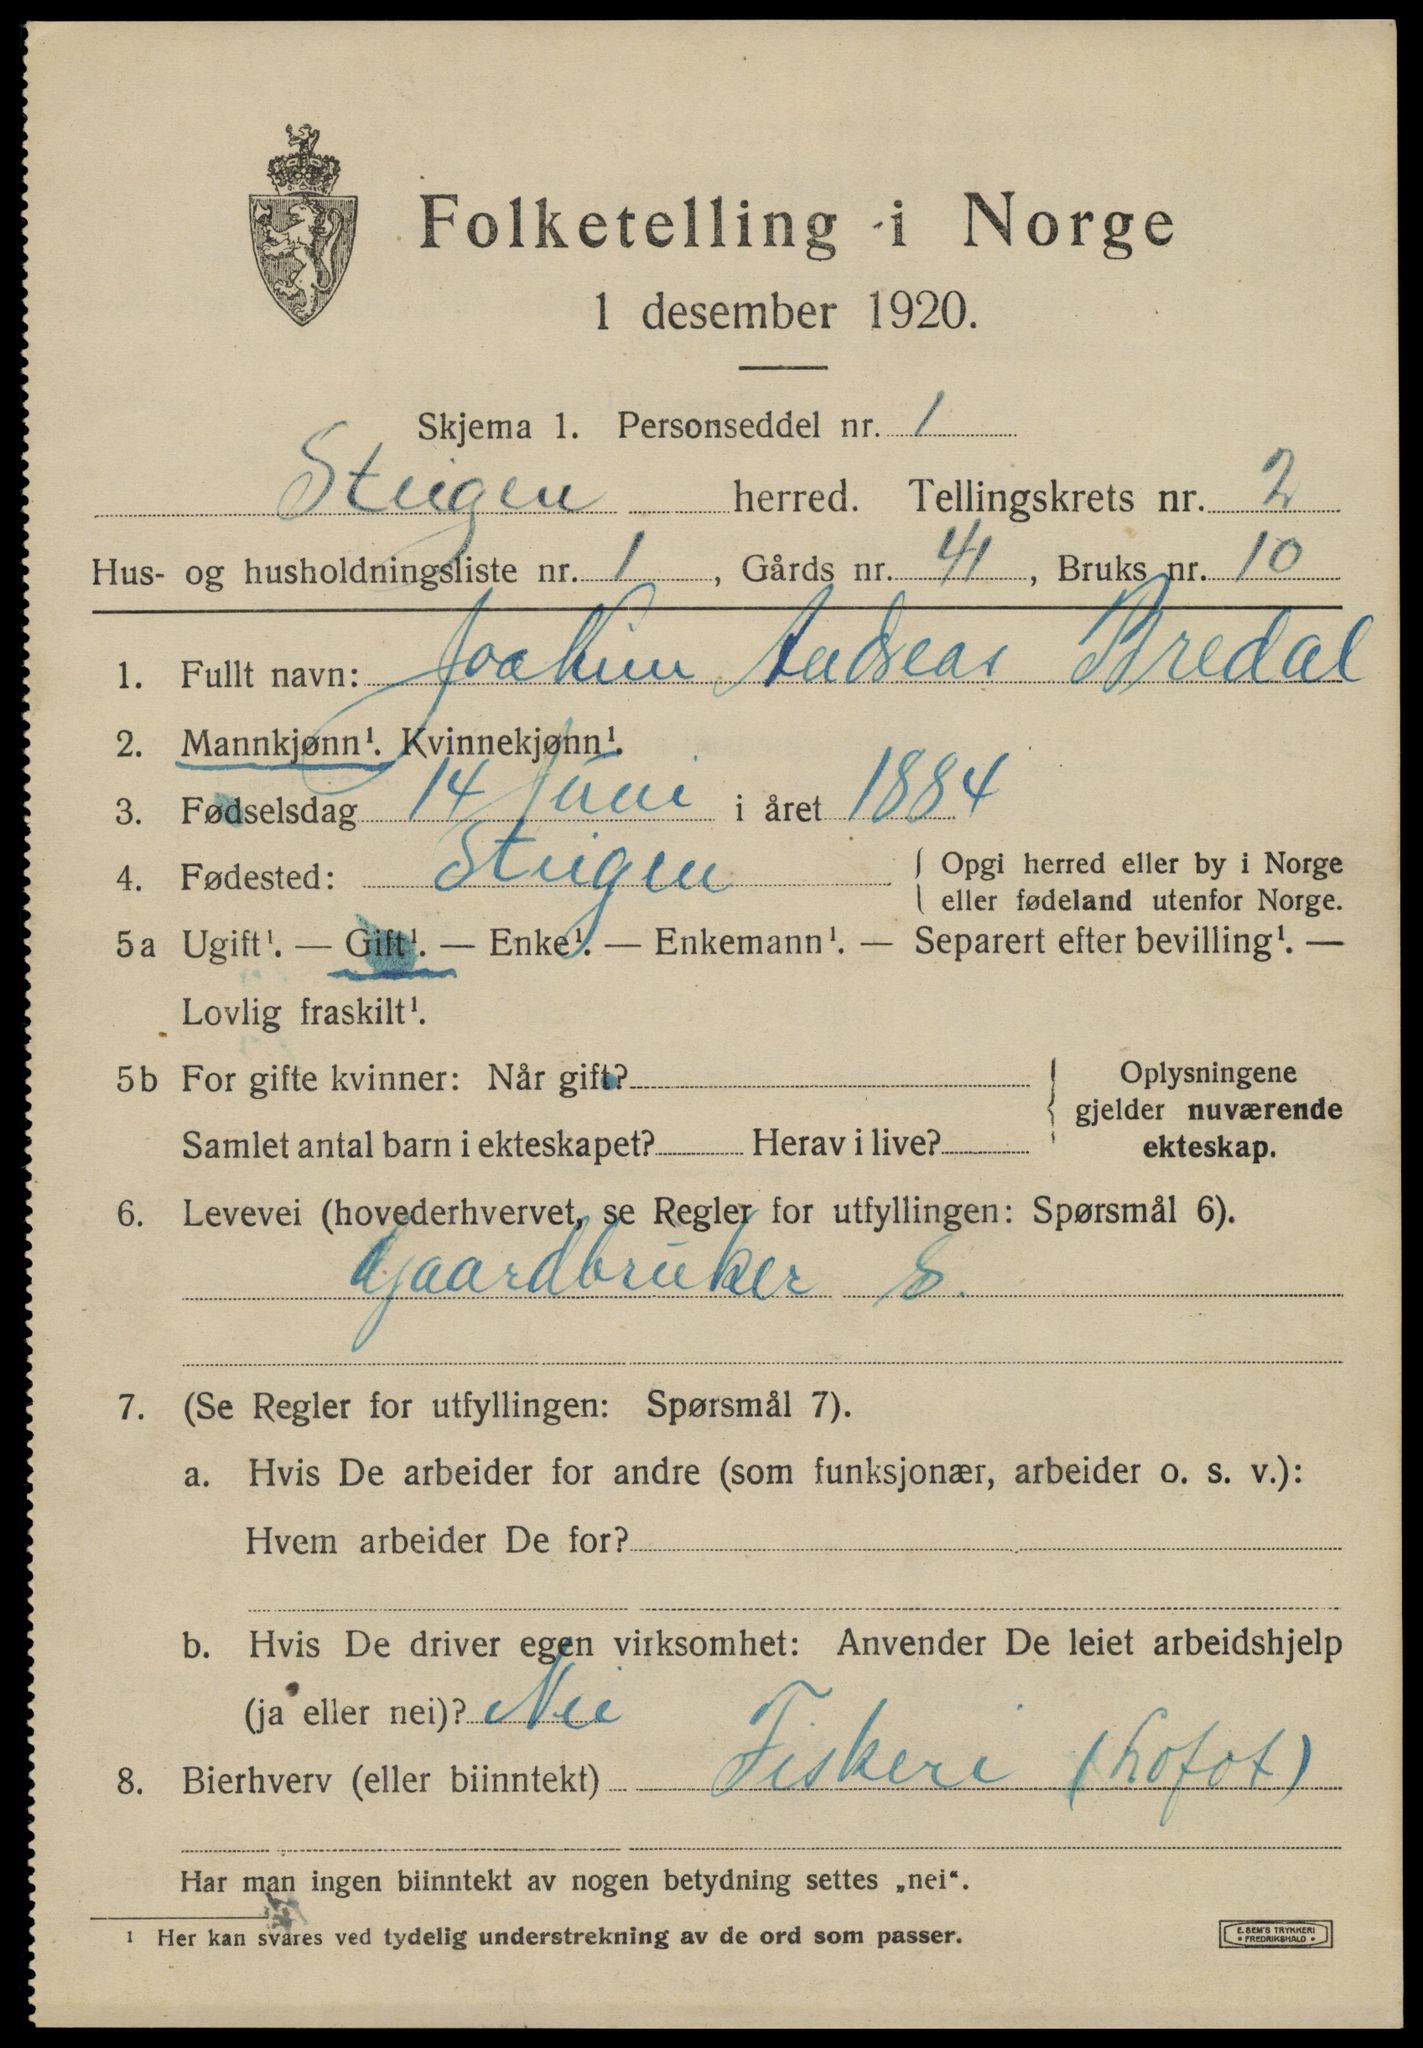 Folketelling i Norge
1 desember 1920.
Skjema 1. Personseddel nr. 1
Steigen herred. Tellingskrets nr. 2
Hus- og husholdningsliste nr. 1, Gårds nr. 41, Bruks nr. 10
1. Fullt navn: Joakim Andreas Bredal
2. Mannkjønn¹. Kvinnekjønn¹.
3. Fødselsdag 14 Juni i året 1884
4. Fødested: Steigen { Opgi herred eller by i Norge
eller fødeland utenfor Norge.
5a Ugift¹. — Gift¹. — Enke¹. — Enkemann¹. — Separert efter bevilling¹. —
Lovlig fraskilt¹.
5b For gifte kvinner: Når gift? { Oplysningene
gjelder nuværende
Samlet antal barn i ekteskapet? Herav i live? ekteskap.
6. Levevei (hovederhvervet, se Regler for utfyllingen: Spørsmål 6).
Gaardbruker S.
7. (Se Regler for utfyllingen: Spørsmål 7).
a. Hvis De arbeider for andre (som funksjonær, arbeider o. s. v.):
Hvem arbeider De for?
b. Hvis De driver egen virksomhet: Anvender De leiet arbeidshjelp
(ja eller nei)? Nei
8. Bierhverv (eller biinntekt) Fiskeri (Lofot)
Har man ingen biinntekt av nogen betydning settes „nei“.
¹ Her kan svares ved tydelig understrekning av de ord som passer.
E. SEM'S TRYKKERI
• FREDRIKSHALD •